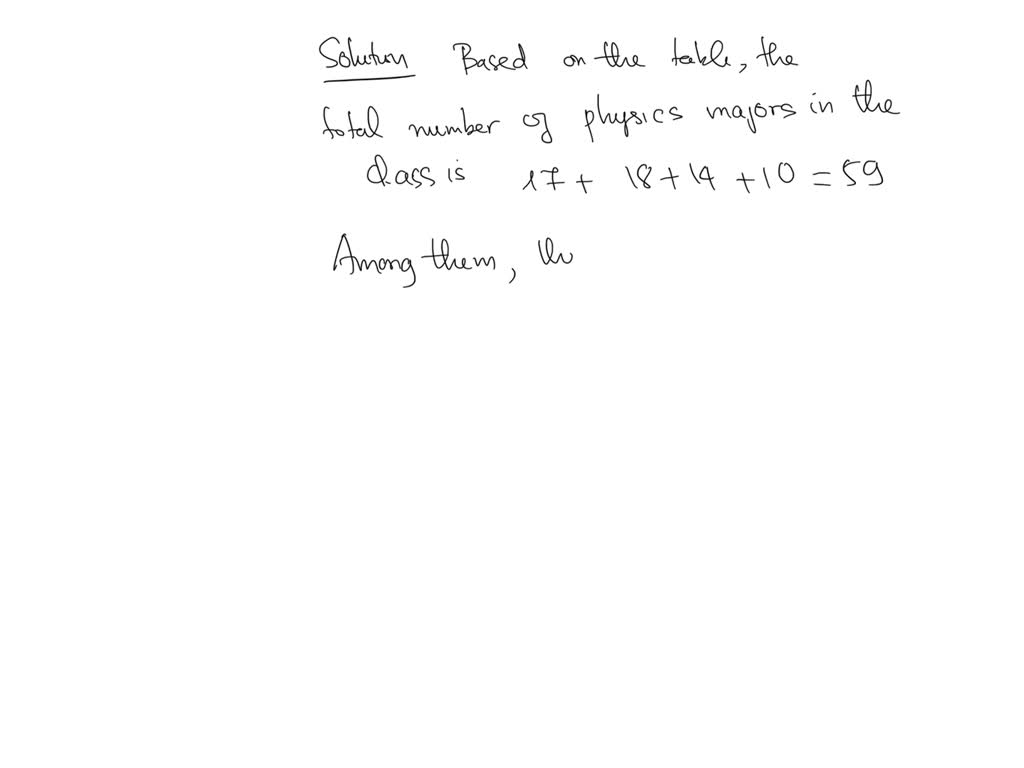 Solution Based on the table, the
total number of physics majors in the
class is 17 + 18 + 14 + 10 = 59
Among them,